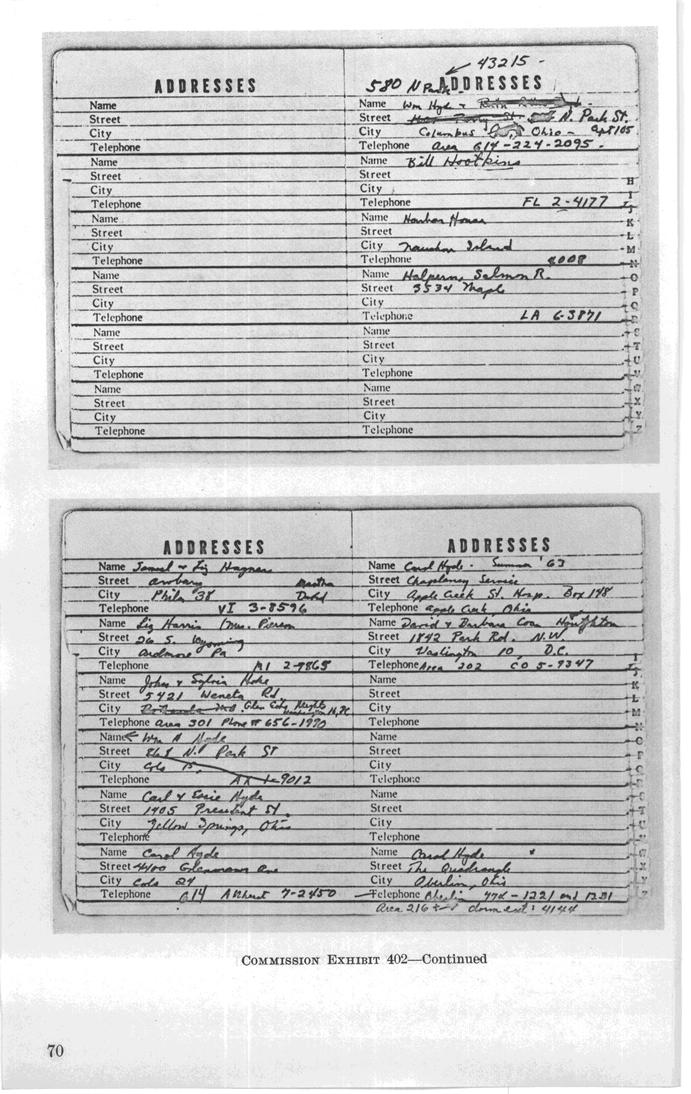 43215 -
ADDRESSES
Name
Street
City
Telephone
Name
Street
City
Telephone
Name
Street
City
Telephone
Name
Street
City
Telephone
Name
Street
City
Telephone
Name
Street
City
Telephone
580 N Park
ADDRESSES
Name Wm Hyde &
Street N. Park St.
City Columbus Ohio - apt 105
Telephone Area 614-224-2095.
Name Bill Hootkins
Street
City
Telephone FL 2-4177
Name Harbor House
Street
City Naushon Island
Telephone 8008
Name Halpern, Salmon R.
Street 3534 Maple
City
Telephone LA 6-3871
Name
Street
City
Telephone
Name
Street
City
Telephone
H
I
J
K
L
M
N
O
P
Q
R
S
T
U
V
W
X
Y
Z
ADDRESSES
Name Samuel & Liz Hagner
Street Martha
City Phila 38 David
Telephone VI 3-8596
Name Liz Harris (Mrs. Pierson
Street 26 S. Wyoming
City Ardmore Pa
Telephone MI 2-9865
Name John & Sylvia Hoke
Street 5421 Weneta Rd.
City Md. Glen Echo Heights Washington 16, DC
Telephone area 301 Phone # 656-1990
Name Wm A Hyde
Street 868 N. Park ST
City Cols 15,
Telephone AX 1-9012
Name Carl & Essie Hyde
Street 1405 President St.
City Yellow Springs, Ohio
Telephone
Name Carol Hyde
Street 4400 Ave
City Cols 24
Telephone 614 AMherst 7-2450
ADDRESSES
Name Carol Hyde - Summer '63
Street Chaplaincy Service
City Apple Creek St. Hosp. Box 148
Telephone Apple Creek, Ohio
Name David & Barbara Coan Houghton
Street 1842 Park Rd. N.W.
City Washington 10, D.C.
Telephone Area 202 CO 5-9347
Name
Street
City
Telephone
Name
Street
City
Telephone
Name
Street
City
Telephone
Name Carol Hyde
Street The Quadrangle
City Oberlin, Ohio
Telephone Oberlin 774-1221 and 1231
Area 216 dorm ext: 4144
COMMISSION EXHIBIT 402—Continued
70